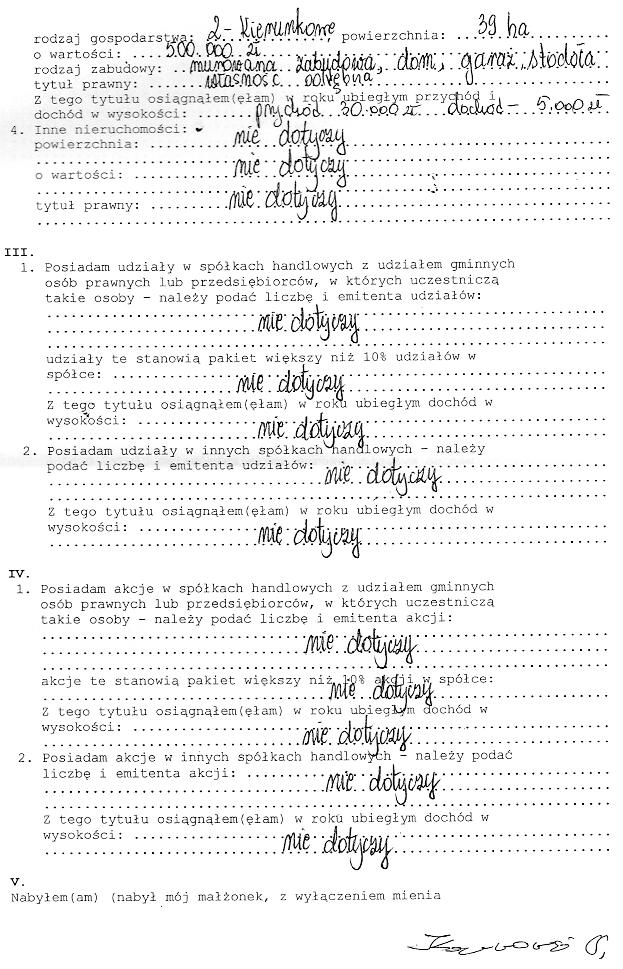 rodzaj gospodarstwa: 2-kierunkowe powierzchnia: 39 ha
o wartości: 500.000 zł
rodzaj zabudowy: murowana zabudowa, dom, garaż, stodoła
tytuł prawny: własność odrębna
Z tego tytułu osiągnąłem(ęłam) w roku ubiegłym przychód i
dochód w wysokości: przychód 30.000 zł dochód - 5.000 zł
4. Inne nieruchomości:
powierzchnia: nie dotyczy
o wartości: nie dotyczy
tytuł prawny: nie dotyczy
III.
1. Posiadam udziały w spółkach handlowych z udziałem gminnych
osób prawnych lub przedsiębiorców, w których uczestniczą
takie osoby - należy podać liczbę i emitenta udziałów:
nie dotyczy
udziały te stanowią pakiet większy niż 10% udziałów w
spółce: nie dotyczy
Z tego tytułu osiągnąłem(ęłam) w roku ubiegłym dochód w
wysokości: nie dotyczy
2. Posiadam udziały w innych spółkach handlowych - należy
podać liczbę i emitenta udziałów: nie dotyczy
Z tego tytułu osiągnąłem(ęłam) w roku ubiegłym dochód w
wysokości: nie dotyczy
IV.
1. Posiadam akcje w spółkach handlowych z udziałem gminnych
osób prawnych lub przedsiębiorców, w których uczestniczą
takie osoby - należy podać liczbę i emitenta akcji:
nie dotyczy
akcje te stanowią pakiet większy niż 10% akcji w spółce:
nie dotyczy
Z tego tytułu osiągnąłem(ęłam) w roku ubiegłym dochód w
wysokości: nie dotyczy
2. Posiadam akcje w innych spółkach handlowych - należy podać
liczbę i emitenta akcji: nie dotyczy
Z tego tytułu osiągnąłem(ęłam) w roku ubiegłym dochód w
wysokości: nie dotyczy
V.
Nabyłem(am) (nabył mój małżonek, z wyłączeniem mienia